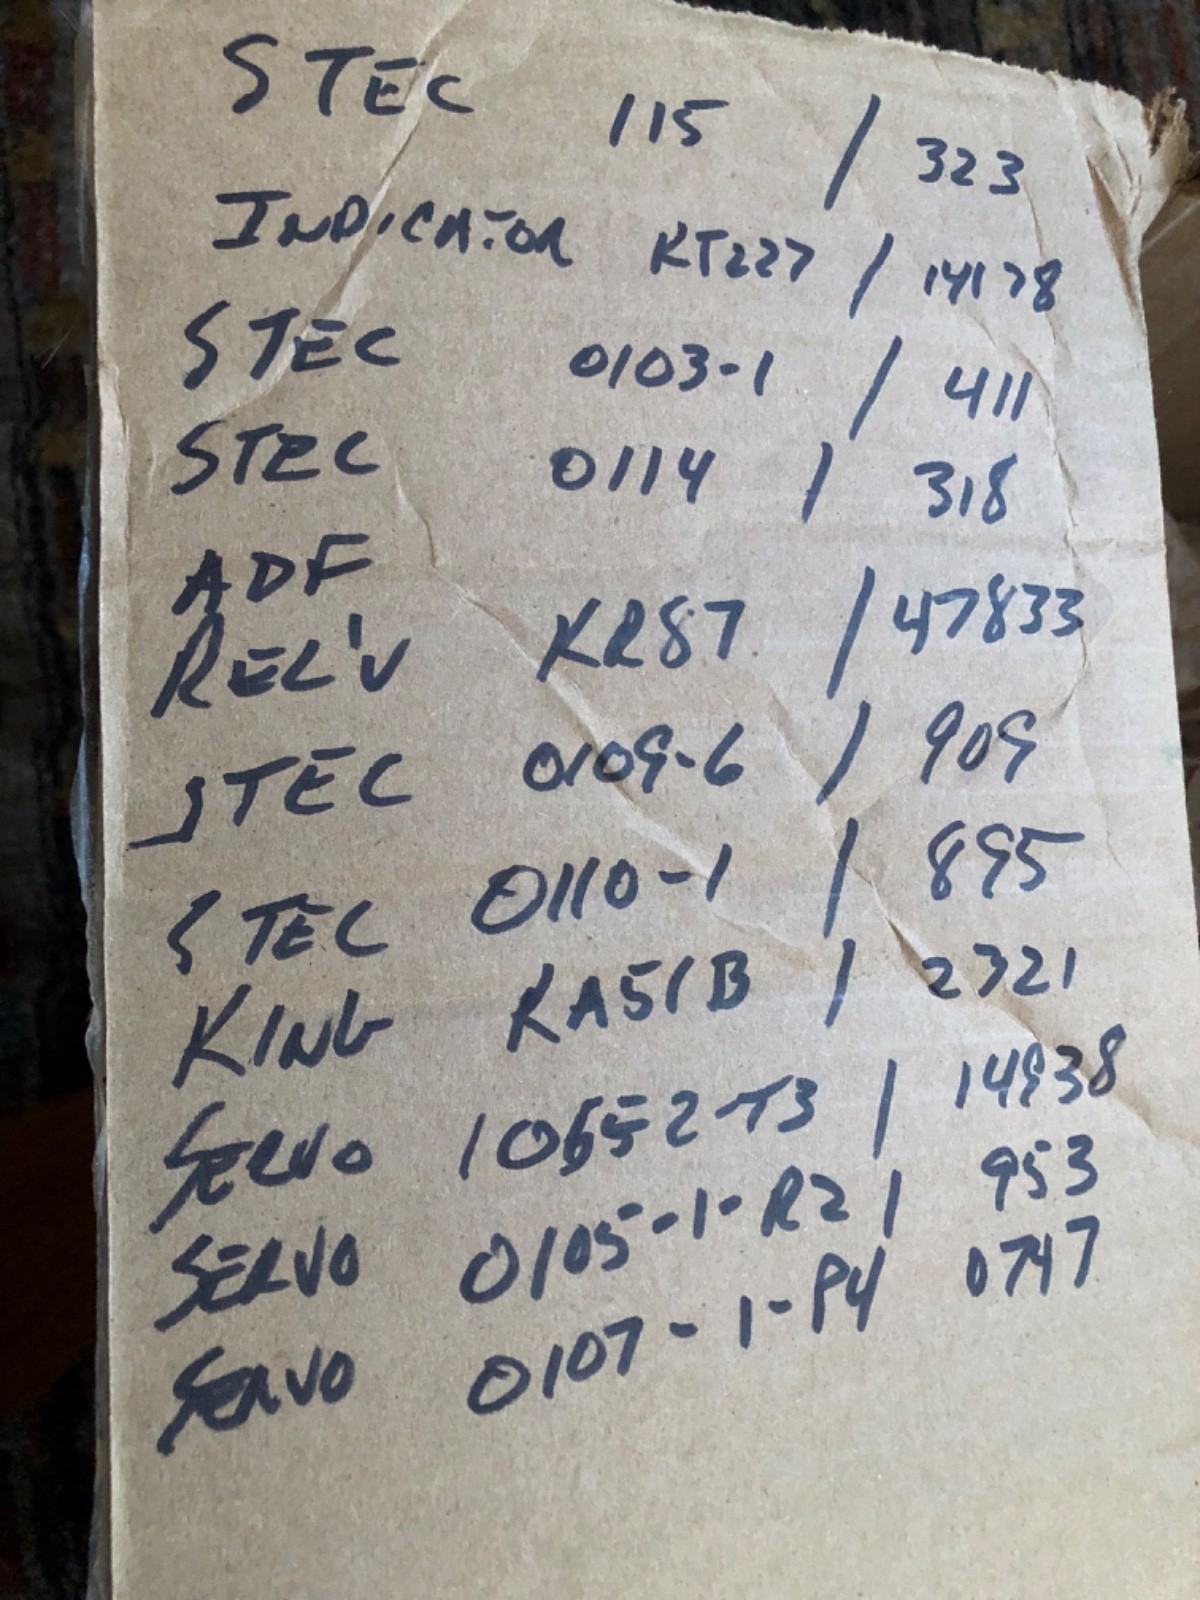 STEC 115 / 323
INDICATOR KT227 / 14178
STEC 0103-1 / 411
STEC 0114 / 318
ADF
REC'V KR87 / 47833
STEC 0109-6 / 909
STEC 0110-1 / 895
KING KA51B / 2321
SERVO 10652-T3 / 14938
SERVO 0105-1-R2 / 953
SERVO 0107-1-P4 0747